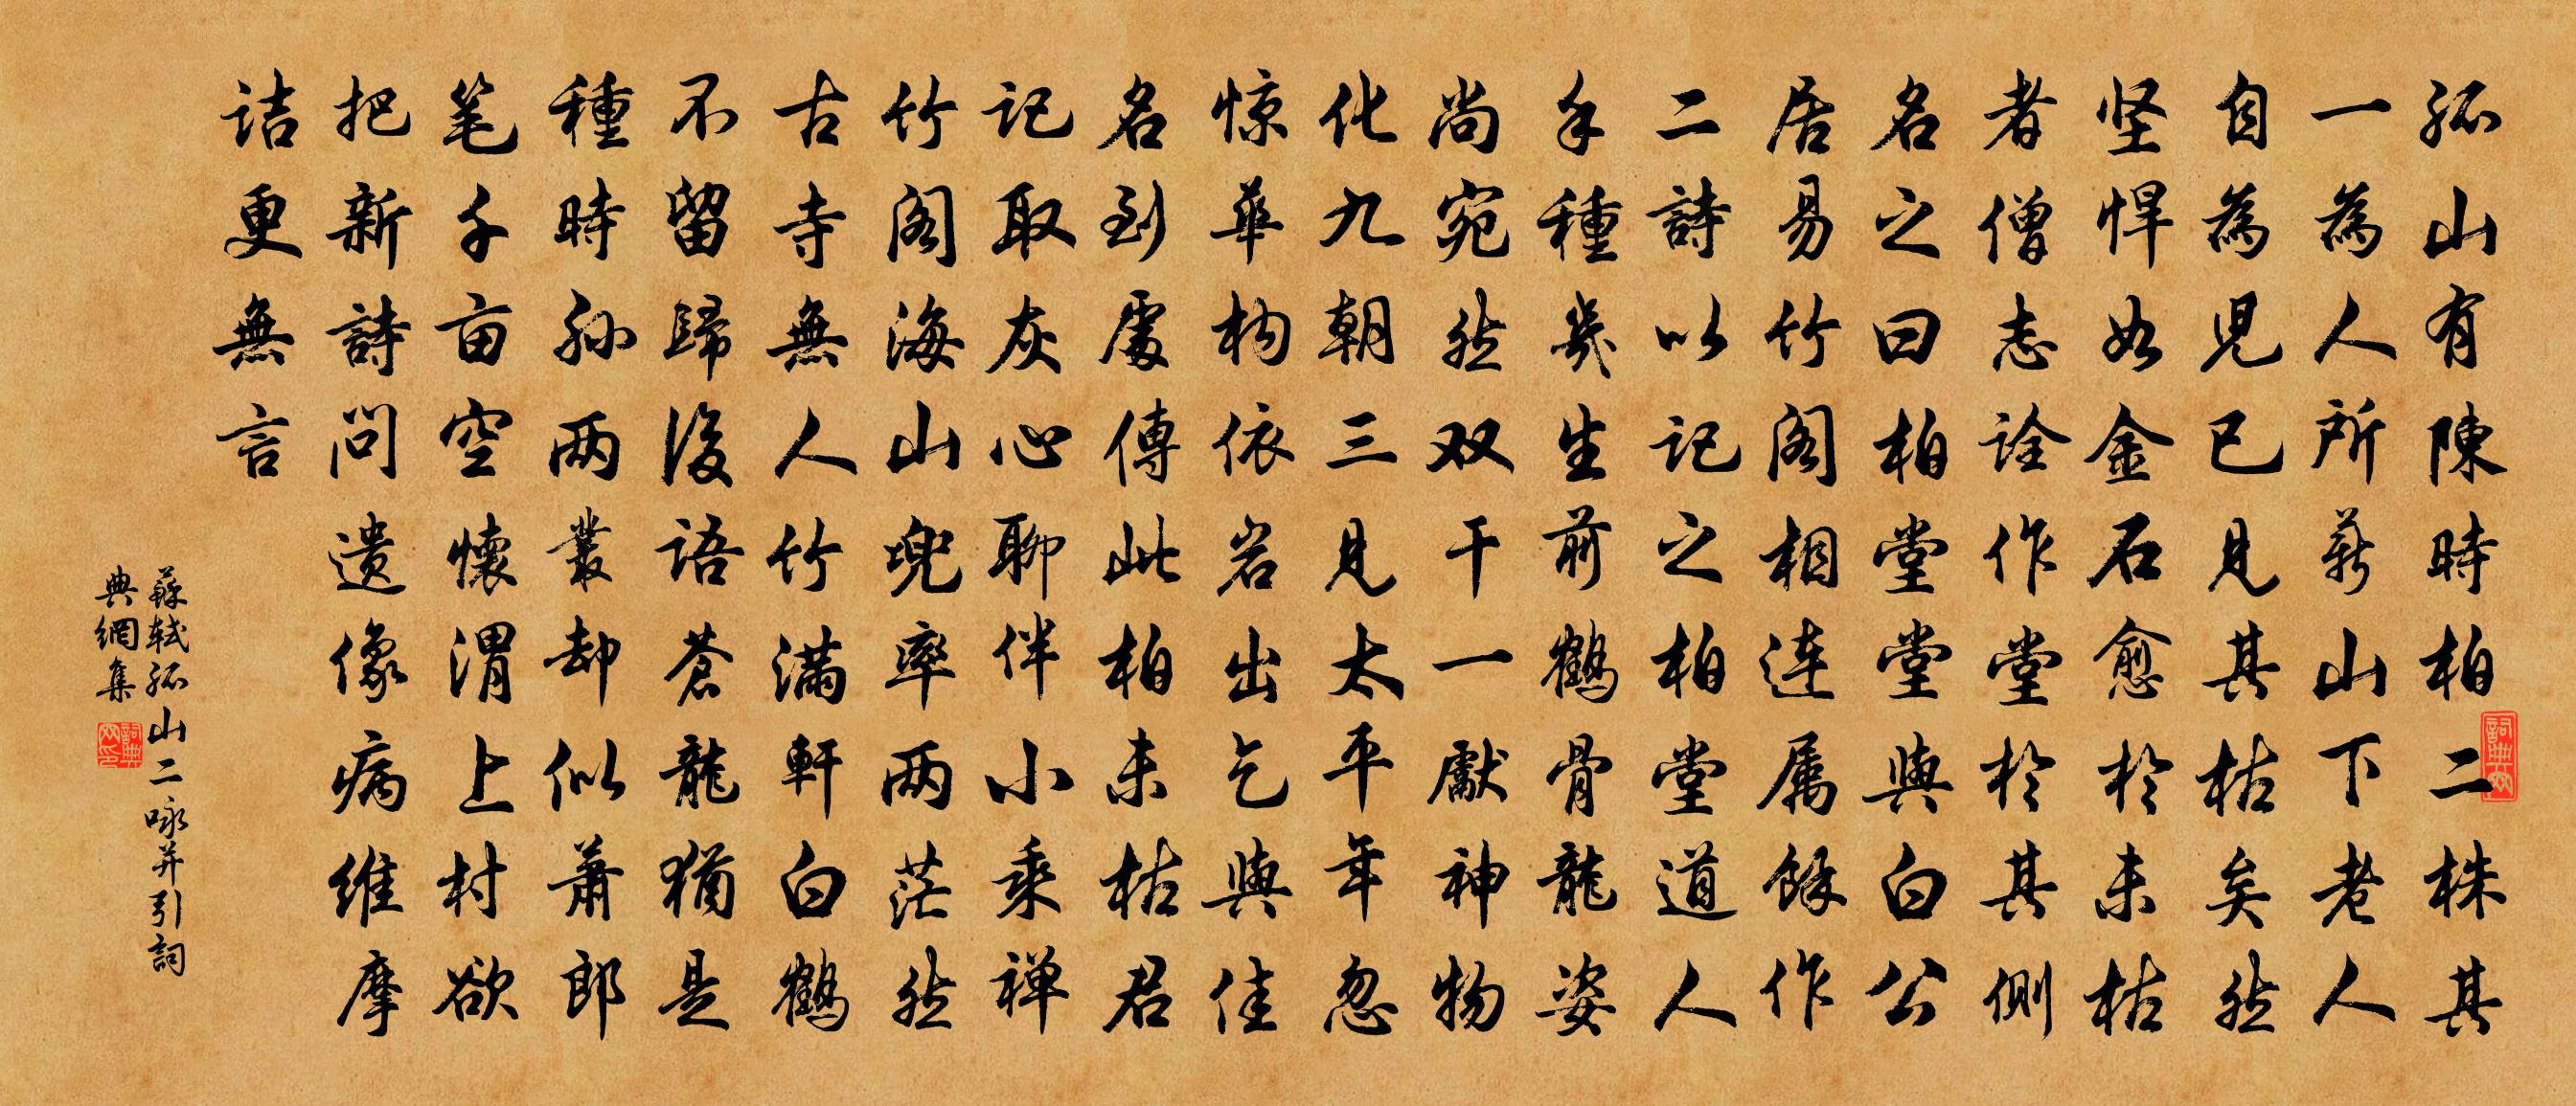 孤山有陳時柏二株其
一為人所薪山下老人
自為児已見其枯矣然
坚悍如金石愈於未枯
者僧志詮作堂於其側
名之曰柏堂堂與白公
居易竹阁相连属餘作
二詩以记之柏堂道人
手種幾生前鶴骨龍姿
尚宛然双干一獻神物
化九朝三見太平年忽
惊華构依岩出乞與佳
名到處傳此柏未枯君
记取灰心聊伴小乘禅
竹阁海山兜率两茫然
古寺無人竹满軒白鶴
不留歸後語蒼龍猶是
種時孙两叢却似萧郎
笔千亩空懷渭上村欲
把新詩问遗像病维摩
诘更無言
蘇軾孤山二咏并引詞
典網集
詞典网
詞典网印